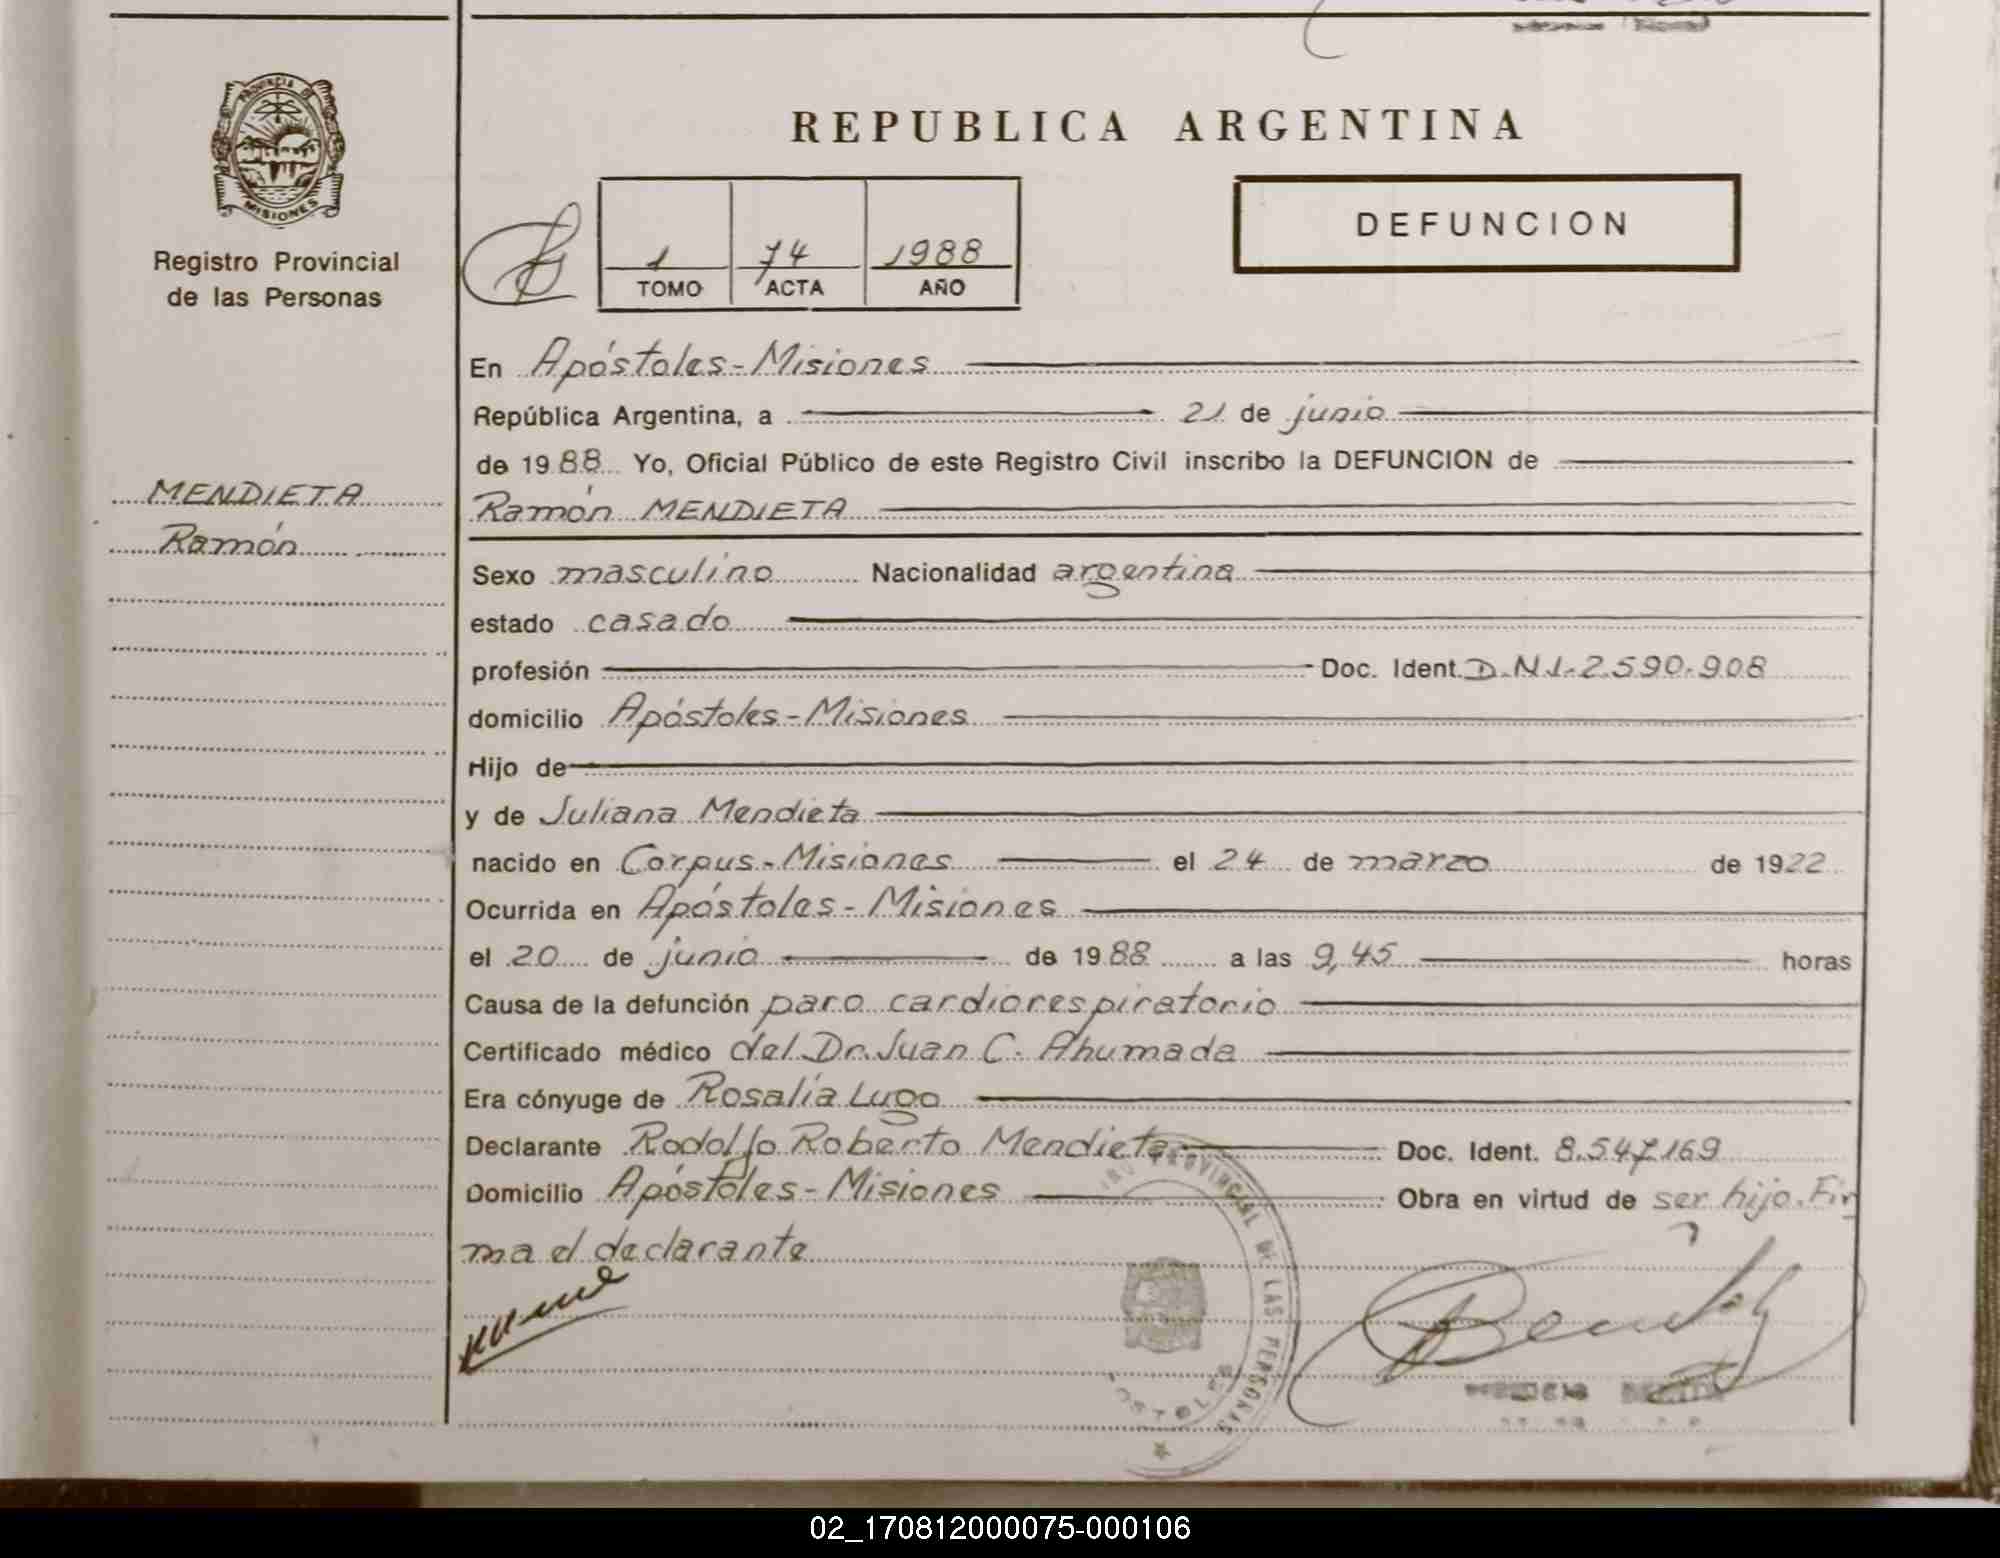 PROVINCIA DE
MISIONES
Registro Provincial
de las Personas
MENDIETA
Ramón
REPUBLICA ARGENTINA
1 74 1988
TOMO ACTA AÑO
DEFUNCION
En Apóstoles-Misiones
República Argentina, a 21 de junio
de 1988 Yo, Oficial Público de este Registro Civil inscribo la DEFUNCION de
Ramón MENDIETA
Sexo masculino Nacionalidad argentina
estado casado
profesión Doc. Ident. D.N.I-2.590.908
domicilio Apóstoles-Misiones
Hijo de
y de Juliana Mendieta
nacido en Corpus-Misiones el 24 de marzo de 1922
Ocurrida en Apóstoles-Misiones
el 20 de junio de 1988 a las 9,45 horas
Causa de la defunción paro cardiorespiratorio
Certificado médico del Dr. Juan C. Ahumada
Era cónyuge de Rosalía Lugo
Declarante Rodolfo Roberto Mendieta Doc. Ident. 8.547.169
Domicilio Apóstoles-Misiones Obra en virtud de ser hijo. Fir
ma el declarante
PROVINCIAL DE LAS PERSONAS
02_170812000075-000106